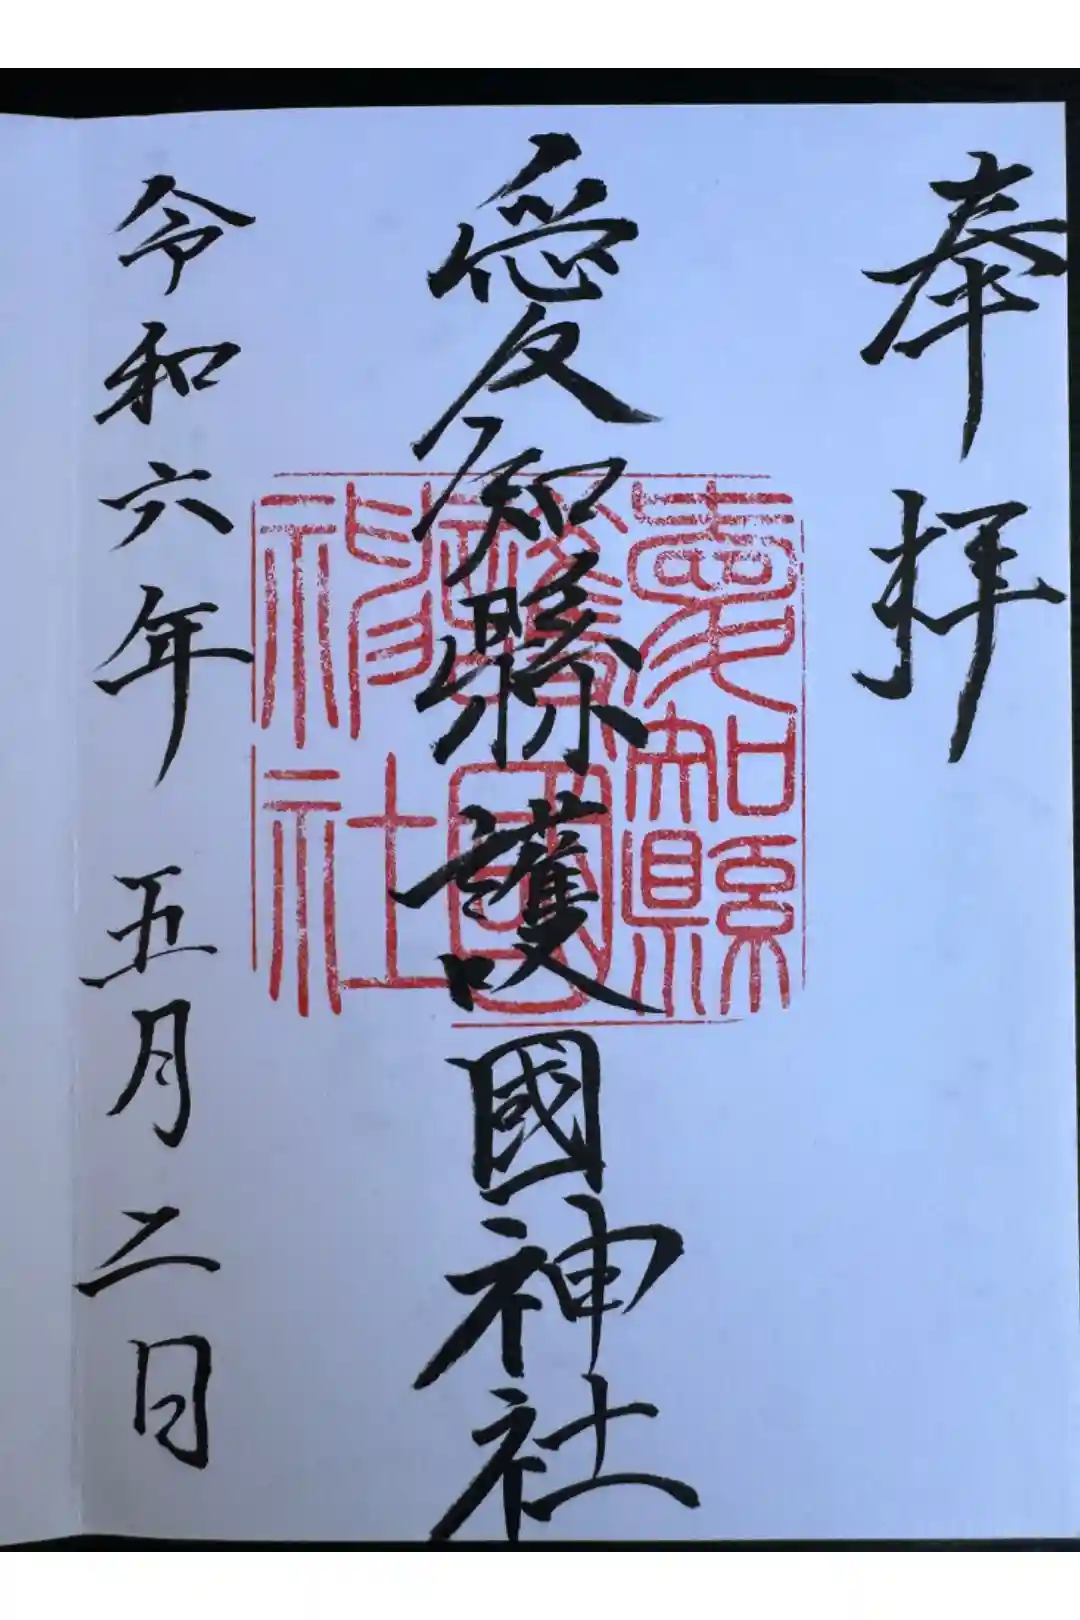 奉拝
愛知縣護國神社
愛知縣
護國
神社
令和六年 五月二日